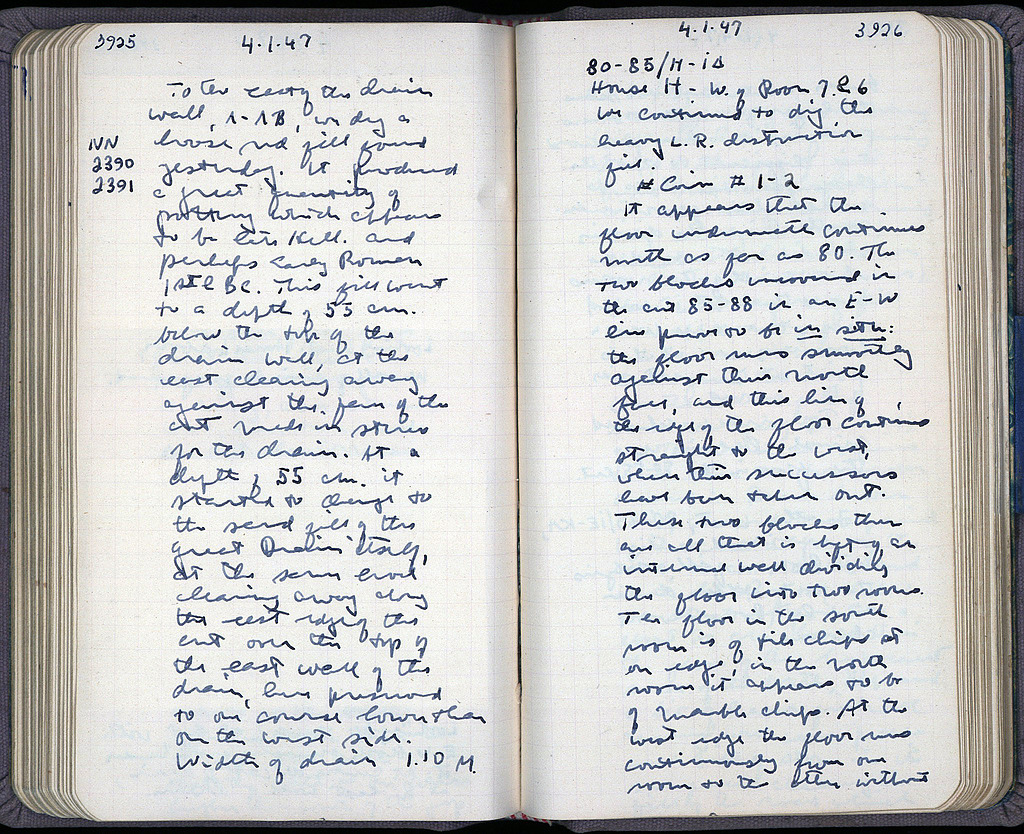 3925
4.1.47
To the east of the drain
wall, Λ-ΛΒ, we dug a
loose red fill found
yesterday. It produced
a great quantity of
pottery which appears
to be late Hell. and
perhaps Early Roman
1st C BC. This fill went
to a depth of 55 cm.
below the top of the
drain wall, at the
east clearing away
against the face of the
cut made in stereo
for the drain. At a
depth of 55 cm. it
started to change to
the sand fill of the
great Drain itself,
at the same level
clearing away along
the east edge of the
cut over the top of
the east wall of the
drain, here preserved
to one course lower than
on the west side.
Width of drain 1.10 M.
NN
2390
2391
4.1.47
3926
80-85/H-ΙΔ
House H - W. of Room 7 & 6
We continued to dig the
heavy L.R. destruction
fill.
# Coin # 1-2
It appears that the
floor underneath continues
north as far as 80. The
two blocks uncovered in
the cut 85-88 in an E-W
line prove to be in situ:
the floor runs smoothly
against their north
face, and this line of
the edge of the floor continues
straight to the west,
where their successors
have been taken out.
These two blocks then
are all that is left of an
internal wall dividing
the floor into two rooms.
The floor in the south
room is of tile chips set
on edge; in the north
room it appears to be
of marble chips. At the
west edge the floor runs
continuously from one
room to the other without